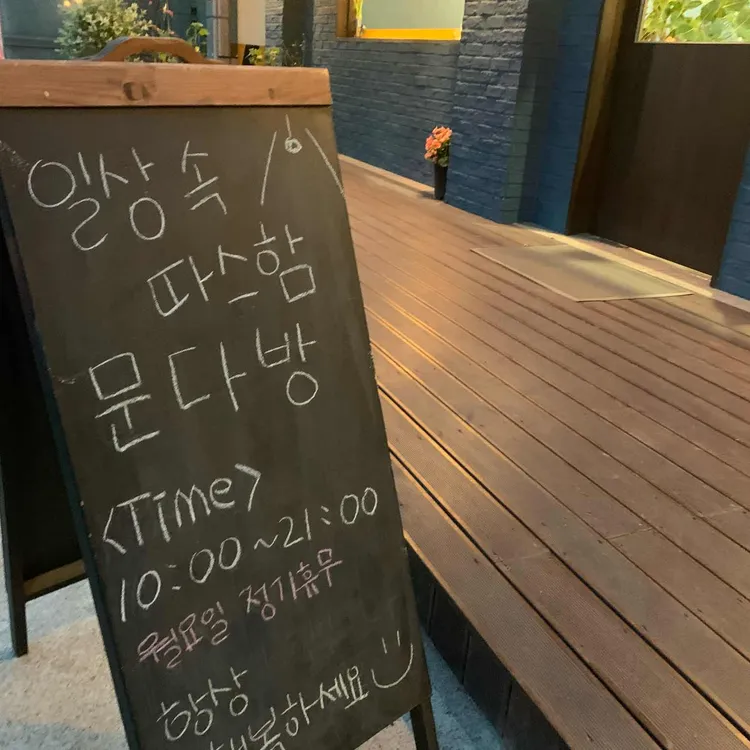 일상 속
따스함
문다방
<Time>
10:00~21:00
월요일 정기휴무
항상
행복하세요